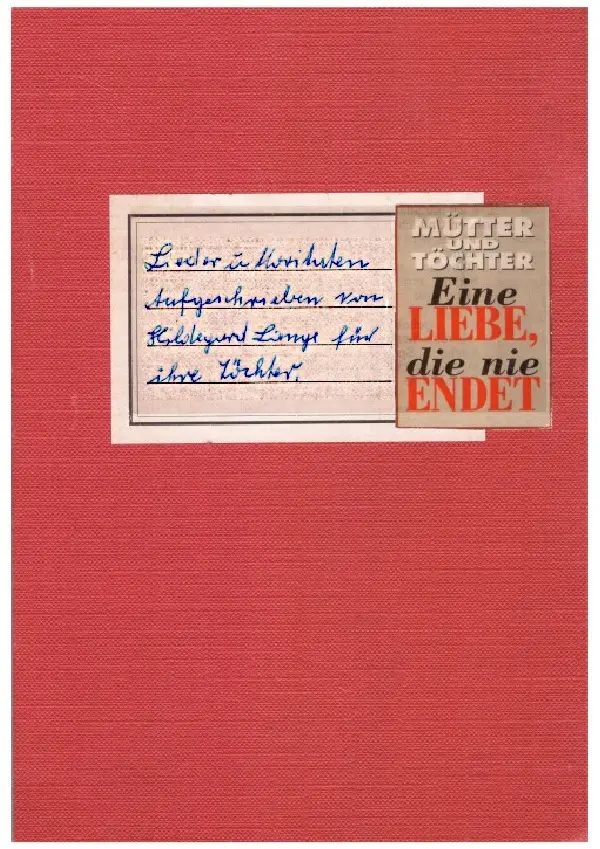 Lieder u Moritaten
Aufgeschrieben von
Hildegard Lange für
ihre Töchter.
MÜTTER
UND
TÖCHTER
Eine
LIEBE,
die nie
ENDET